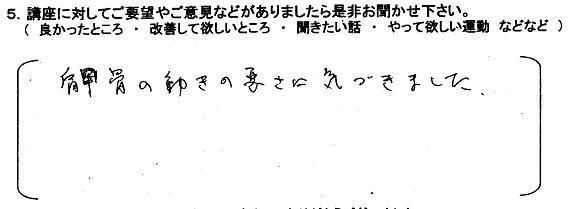 5. 講座に対してご要望やご意見などがありましたら是非お聞かせ下さい。
( 良かったところ ・ 改善して欲しいところ ・ 聞きたい話 ・ やって欲しい運動 などなど )
肩甲骨の動きの悪さに気づきました。